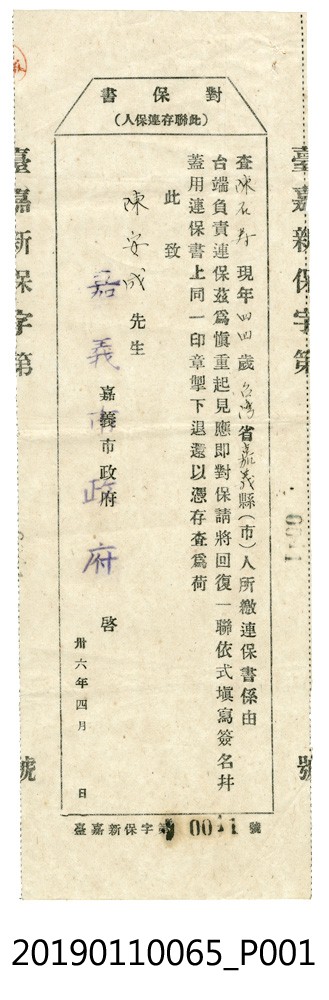 對保書
（此聯存連保人）
查陳石卿現年四四歲台灣省嘉義縣（市）人所繳連保書係由
台端負責連保茲為慎重起見應即對保請將回復一聯依式填寫簽名幷
蓋用連保書上同一印章掣下退還以憑存查爲荷
此致
陳安成先生
嘉義市政府
嘉義市政府 啓
卅六年四月 日
臺嘉新保字第 0011 號
臺嘉新保字第
號
臺嘉新保字第
號
20190110065_P001